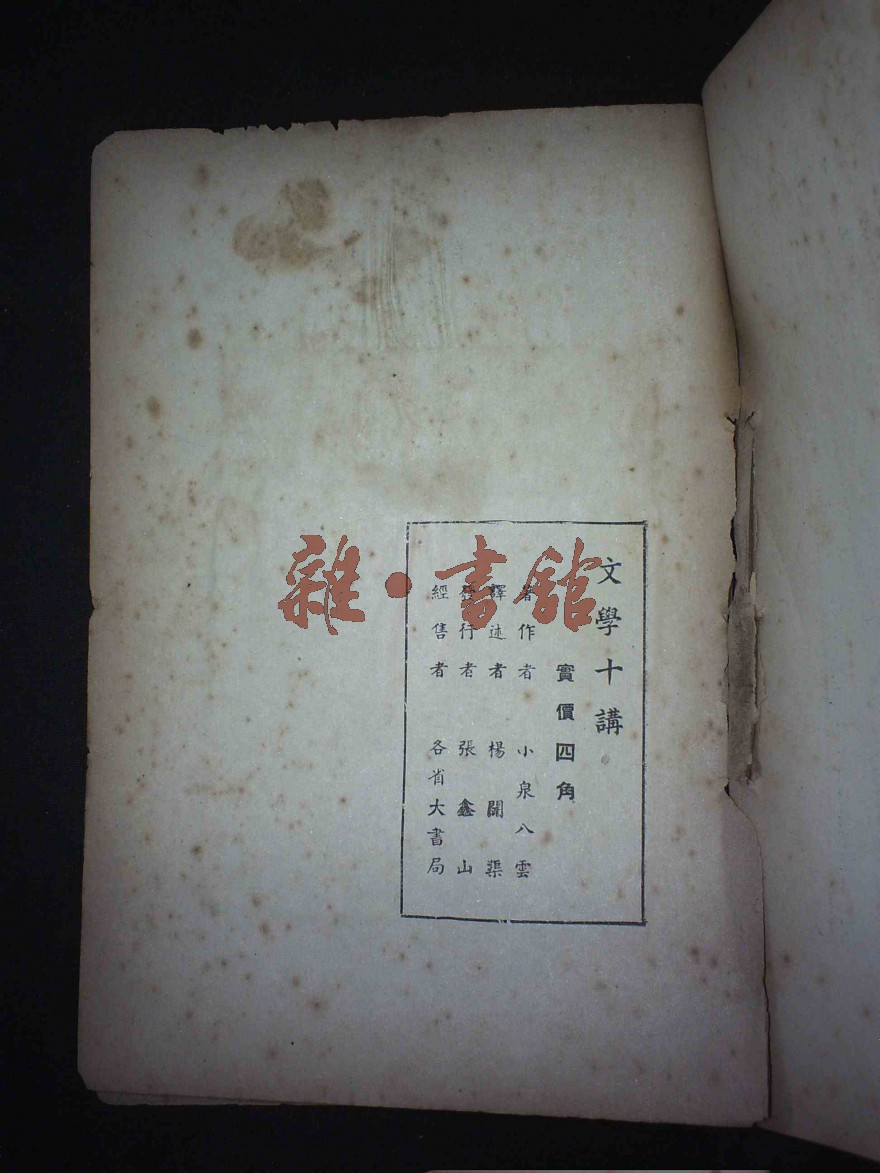 文學十講
實價四角
著作者 小泉八雲
譯述者 楊開渠
發行者 張鑫山
經售者 各省大書局
雜·書館